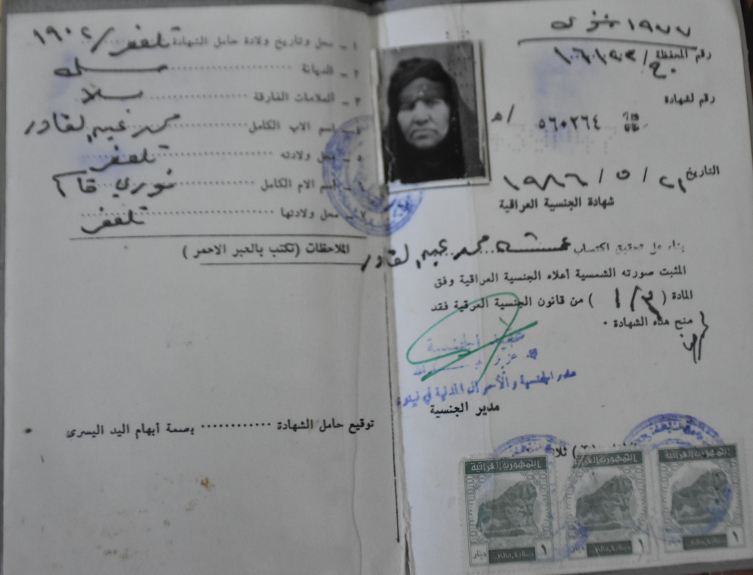 رقم المحفظة
رقم الشهادة
٥٦٠٢٦٤ /م
التاريخ ٢١ / ٥ / ١٩٨٦
شهادة الجنسية العراقية
بناء على تحقيق اكتساب محمد عبد القادر
المثبت صورته الشمسية أعلاه الجنسية العراقية وفق
المادة ( ) من قانون الجنسية العرقية فقد
منح هذه الشهادة ٠
مدير الجنسية والأحوال المدنية في نينوى
مدير الجنسية
الجمهورية العراقية
١ دينار
الجمهورية العراقية
١
الجمهورية العراقية
١
١ ـ محل وتاريخ ولادة حامل الشهادة تلعفر / ١٩٠٢
٢ ـ الديانة
٣ ـ العلامات الفارقة بلا
٤ ـ اسم الاب الكامل محمد عبد القادر
٥ ـ محل ولادته تلعفر
٦ ـ اسم الام الكامل
٧ ـ محل ولادتها تلعفر
الملاحظات (تكتب بالحبر الاحمر )
توقيع حامل الشهادة ············ بصمة أبهام اليد اليسرى